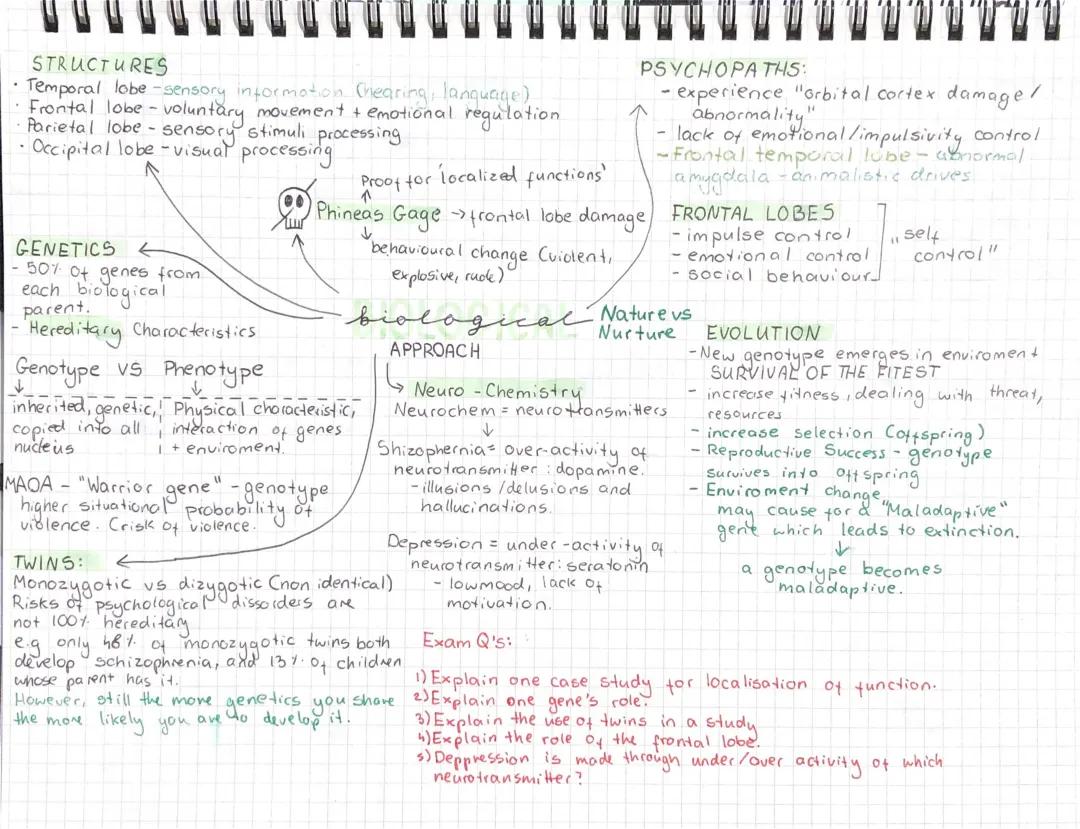 STRUCTURES
· Temporal lobe - sensory information (hearing, language)
· Frontal lobe - voluntary movement + emotional regulation
· Parietal lobe - sensory stimuli processing
· Occipital lobe - visual processing
PSYCHOPATHS:
- experience "orbital cortex damage/
abnormality"
- lack of emotional/impulsivity control
- Frontal temporal lobe - abnormal
amygdala - animalistic drives
Proof for 'localized functions'
↑
Phineas Gage → frontal lobe damage
↓
behavioural change (violent,
explosive, rude)
FRONTAL LOBES
- impulse control
- emotional control
- social behaviour
"self
control"
GENETICS
- 50% of genes from
each biological
parent.
- Hereditary Characteristics
BIOLOGICAL
biological
APPROACH
Nature vs
Nurture
Genotype VS Phenotype
↓ ↓
inherited, genetic, | Physical characteristic,
copied into all | interaction of genes
nucleus | + enviroment.
MAOA - "Warrior gene" - genotype
higher situational probability of
violence. Crisk of violence.
TWINS:
Monozygotic vs dizygotic (non identical)
Risks of psychological dissorders are
not 100% hereditary
e.g only 48% of monozygotic twins both
develop schizophrenia, and 13% of children
whose parent has it.
However, still the more genetics you share
the more likely you are to develop it.
Neuro-Chemistry
Neurochem = neurotransmitters
↓
Shizophernia = over-activity of
neurotransmitter : dopamine.
- illusions/delusions and
hallucinations.
Depression = under-activity of
neurotransmitter: seratonin
- low mood, lack of
motivation.
EVOLUTION
- New genotype emerges in enviroment
SURVIVAL OF THE FITEST
- increase fitness, dealing with threat,
resources
- increase selection (offspring)
- Reproductive Success - genotype
survives into offspring
- Enviroment change
may cause for a "Maladaptive"
gene which leads to extinction.
↓
a genotype becomes
maladaptive.
Exam Q's:
1) Explain one case study for localisation of function.
2) Explain one gene's role.
3) Explain the use of twins in a study
4) Explain the role of the frontal lobe.
5) Deppression is made through under/over activity of which
neurotransmitter?